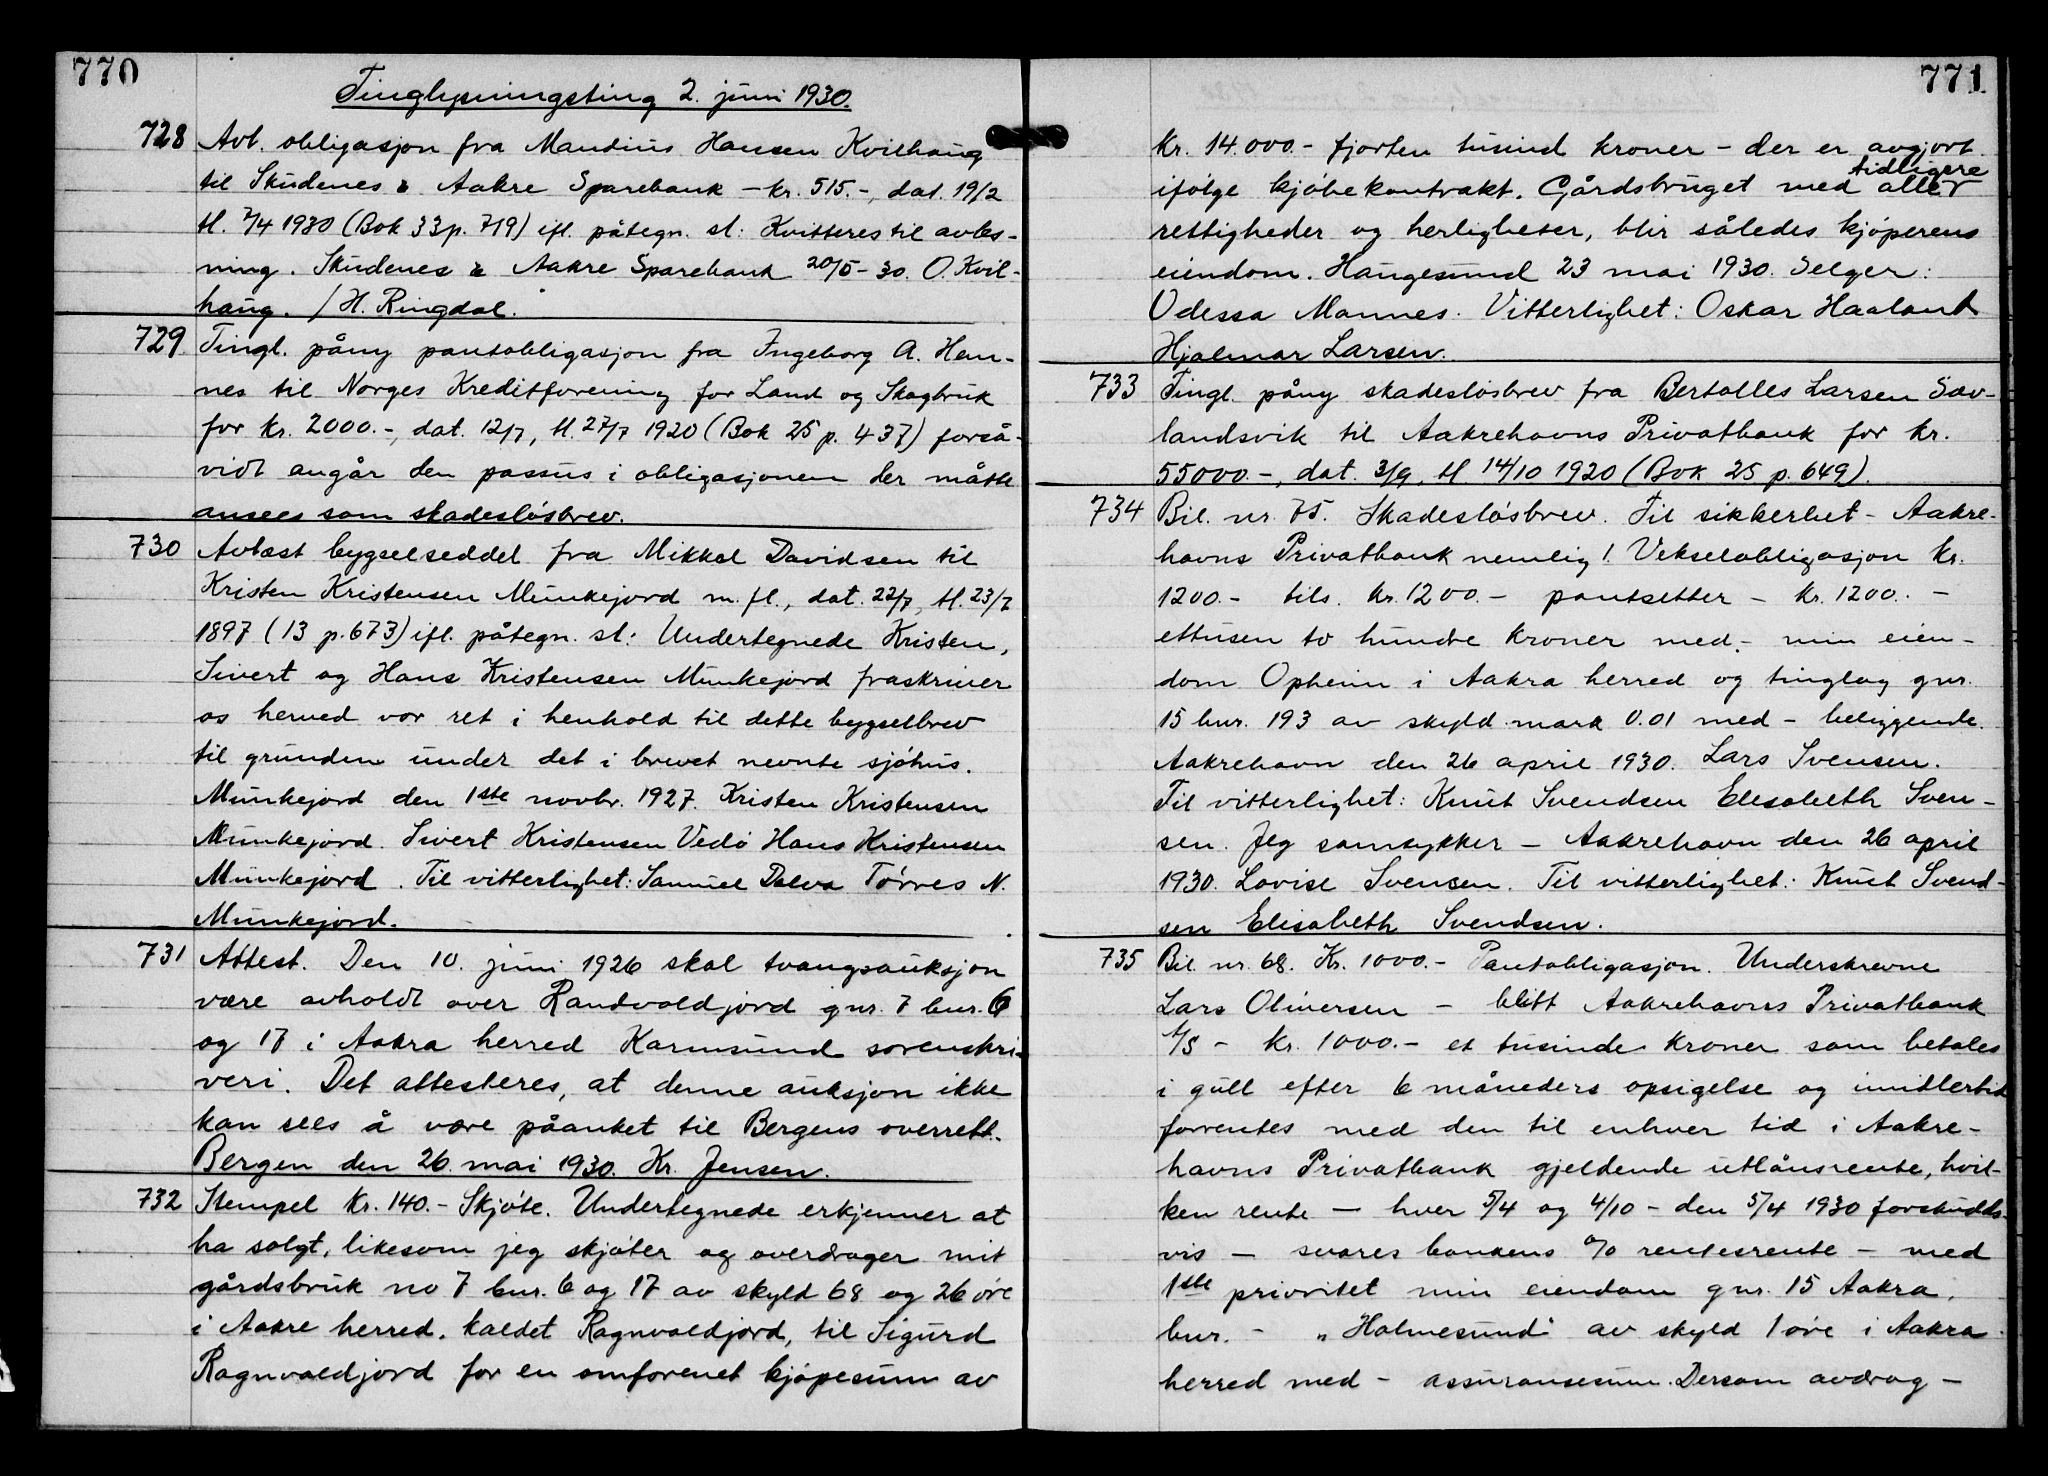 770
Tinglysningsting 2. juni 1930.
728 Avl. obligasjon fra Maudius Hansen Kvilhaug
til Skudenes & Aakre Sparebank - kr. 515.-, dat. 19/2
tl. 7/4 1930 (Bok 33 p. 719) ifl. påtegn. sl: Kvitteres til avles-
ning. Skudenes & Aakre Sparebank 20/5-30. O. Kvil-
haug. / H. Ringdal.
729. Tingl. påny pantobligasjon fra Ingeborg A. Hem-
nes til Norges Kreditforening for Land og Skogbruk
for kr. 2000.-, dat. 12/7, tl. 27/7 1920 (Bok 25 p. 437) forså-
vidt angår den passus i obligasjonen der måtte
ansees som skadesløsbrev.
730 Avlæst bygselseddel fra Mikkal Davidsen til
Kristen Kristensen Munkejord m. fl., dat. 22/7, tl. 23/7
1897 (13 p. 673) ifl. påtegn. sl: Undertegnede Kristen,
Sivert og Hans Kristensen Munkejord fraskriver
os herved vor ret i henhold til dette bygselbrev
til grunden under det i brevet nevnte sjøhus.
Munkejord den 1ste novbr. 1927. Kristen Kristensen
Munkejord. Sivert Kristensen Vedø Hans Kristensen
Munkejord. Til vitterlighet: Samuel Dalva Tørres N.
Munkejord.
731 Attest. Den 10. juni 1926 skal tvangsauksjon
være avholdt over Randvaldjord gnr. 7 bnr. 6
og 17 i Aakra herred Karmsund sorenskri-
veri. Det attesteres, at denne auksjon ikke
kan sees å være påanket til Bergens overrett.
Bergen den 26. mai 1930. Kr. Jensen.
732 Stempel kr. 140.- Skjøte. Undertegnede erkjenner at
ha solgt, likesom jeg skjøter og overdrager mit
gårdsbruk no 7 bnr. 6 og 17 av skyld 68 og 26 øre
i Aakre herred, kaldet Ragnvaldjord, til Sigurd
Ragnvaldjord for en omforenet kjøpesum av
771
kr. 14.000.- fjorten tusind kroner - der er avgjort
tidligere
ifølge kjøbekontrakt. Gårdsbruget med aller
rettigheder og herligheter, blir således kjøperens
eiendom. Haugesund 23 mai 1930. Selger:
Odessa Mannes. Vitterlighet: Oskar Haaland
Hjalmar Larsen.
733 Tingl. påny skadesløsbrev fra Bertolles Larsen Sæv-
landsvik til Aakrehavns Privatbank for kr.
55000.-, dat. 3/9, tl 14/10 1920 (Bok 25 p. 649).
734 Bil. nr. 75. Skadesløsbrev. Til sikkerhet - Aakre-
havns Privatbank nemlig! Vekselobligasjon kr.
1200.- tils. kr. 1200.- pantsetter - kr. 1200.-
ettusen to hundre kroner med - min eien-
dom Opheim i Aakra herred og tinglag gnr.
15 bnr. 193 av skyld mark 0.01 med - beliggende.
Aakrehavn den 26 april 1930. Lars Svensen.
Til vitterlighet: Knut Svendsen Elisabeth Sven-
sen. Jeg samtykker - Aakrehavn den 26 april
1930. Lovise Svensen. Til vitterlighet: Knut Svend-
sen Elisabeth Svendsen.
735 Bil. nr. 68. Kr. 1000.- Pantobligasjon. Underskrevne
Lars Oliversen - blitt Aakrehavns Privatbank
A/S - kr. 1000.- et tusinde kroner som betales
i gull efter 6 måneders opsigelse og imidlertid
forrentes med den til enhver tid i Aakre-
havns Privatbank gjeldende utlånsrente, hvil-
ken rente - hver 5/4 og 4/10 - den 5/4 1930 forskudds-
vis - svares bankens % rentesrente - med
1ste prioritet min eiendom gnr. 15 Aakra,
bnr. - "Holmesund" av skyld 1 øre i Aakra
herred med - assuransesum. Dersom avdrag -